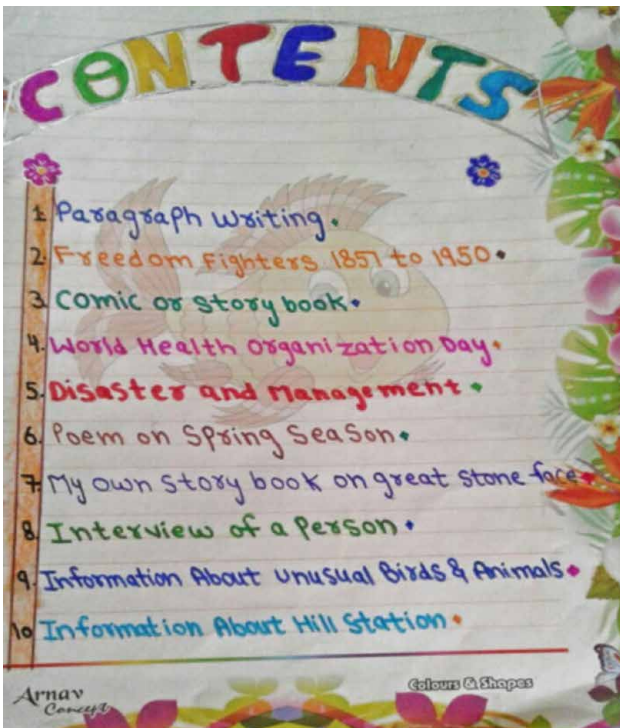 CONTENTS
1. Paragraph writing.
2. Freedom Fighters 1857 to 1950.
3. Comic or story book.
4. World Health Organization Day.
5. Disaster and Management.
6. Poem on Spring Season.
7. My own story book on great stone face.
8. Interview of a Person.
9. Information About unusual Birds & Animals.
10 Information About Hill Station.
Arnav
Concept
Colours & Shapes